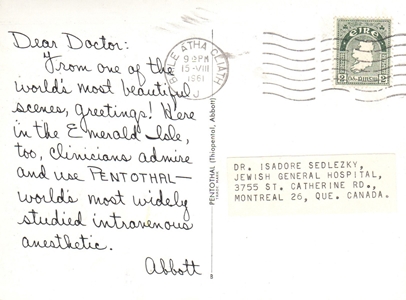 Dear Doctor:
From one of the
world's most beautiful
scenes, greetings! Here
in the Emerald Isle,
too, clinicians admire
and use PENTOTHAL—
world's most widely
studied intravenous
anesthetic.
Abbott
PENTOTHAL (Thiopental, Abbott)
TRADE MARK
8
BAILE ATHA CLIATH
9 PM
15-VIII
1961
J
EIRE
2 2
DR. ISADORE SEDLEZKY,
JEWISH GENERAL HOSPITAL,
3755 ST. CATHERINE RD.,
MONTREAL 26, QUE. CANADA.